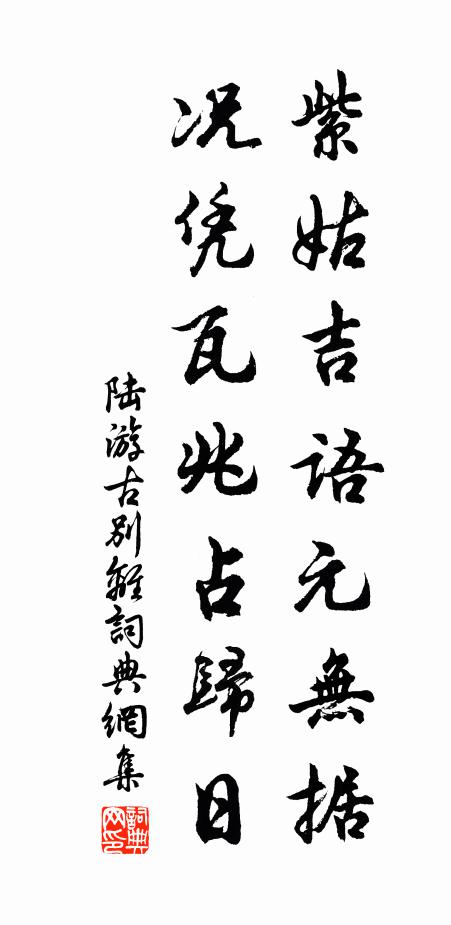 紫姑吉语元無据
况凭瓦兆占歸日
陆游古别離詞典網集
詞典
网印